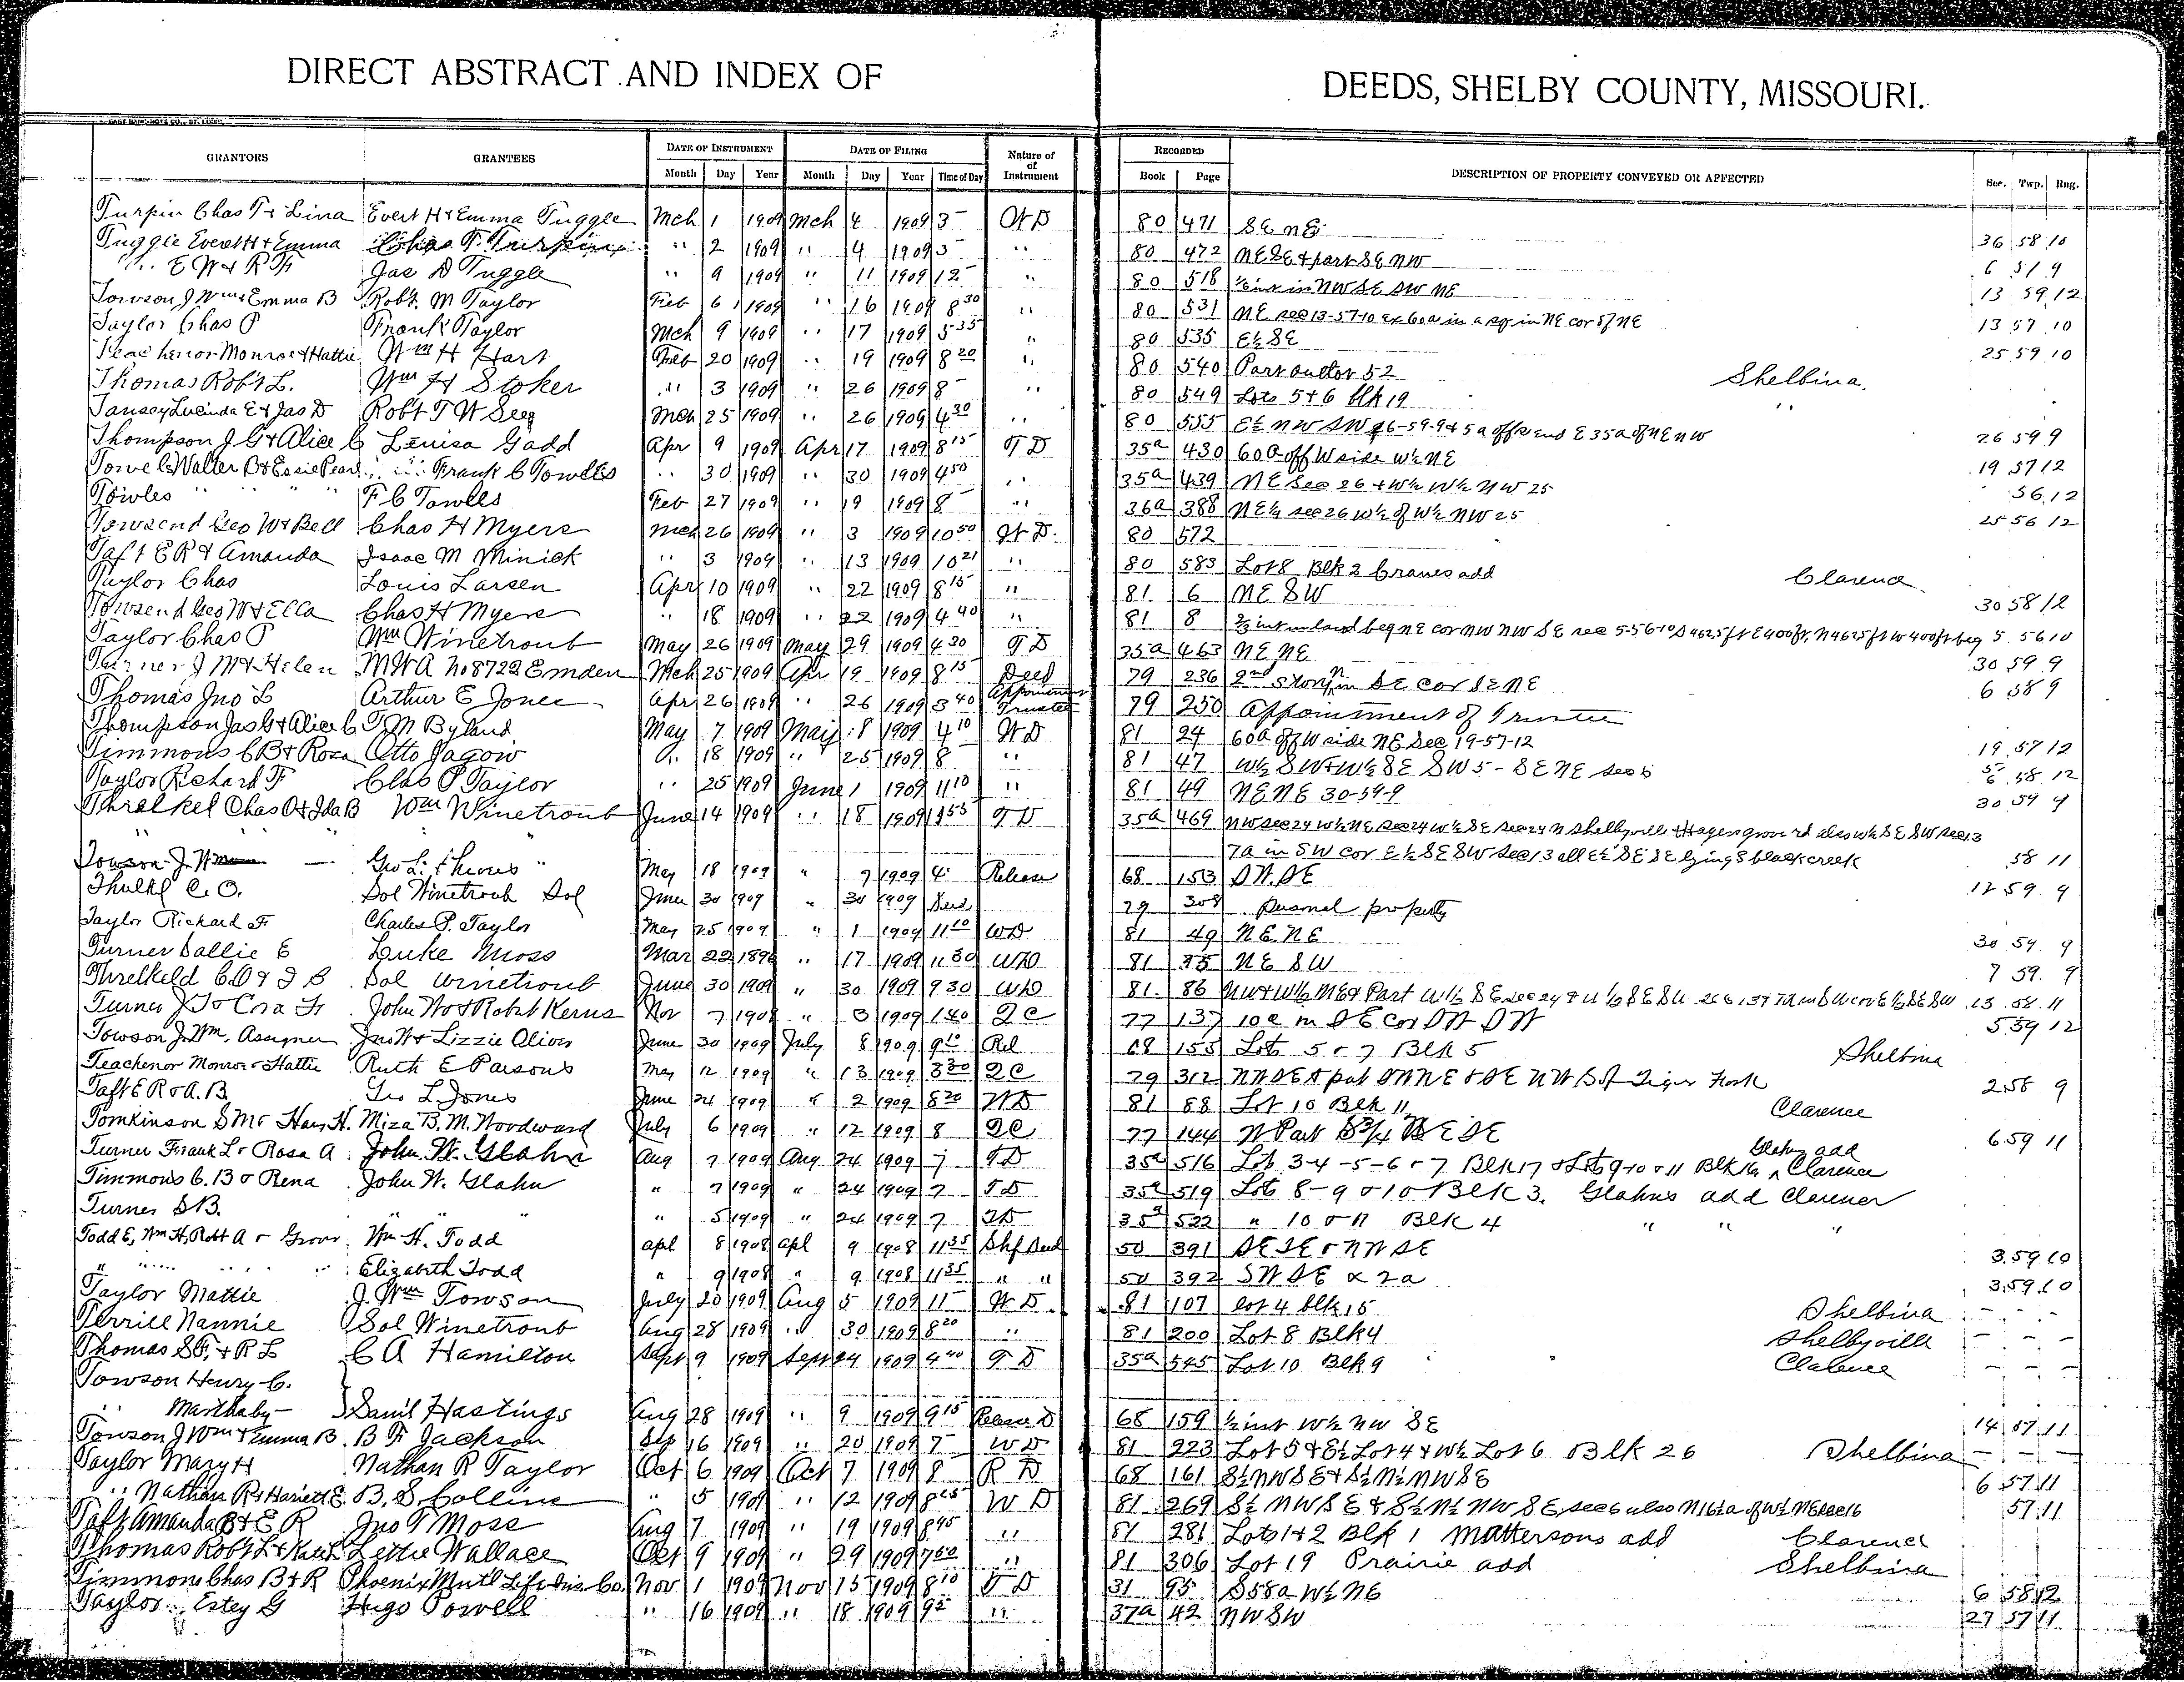 DIRECT ABSTRACT AND INDEX OF DEEDS, SHELBY COUNTY, MISSOURI.
GRANTORS GRANTEES DATE OF INSTRUMENT DATE OF FILING Nature of of Instrument RECORDED DESCRIPTION OF PROPERTY CONVEYED OR AFFECTED Sec. Twp. Rng.
Month Day Year Month Day Year Time of Day Book Page
Turpin Chas T & Lina Evert H & Emma Tuggle Mch 1 1909 Mch 4 1909 3 W D 80 471 SE NE 36 58 10
Tuggle Everett H & Emma Chas T. Turpin " 2 1909 " 4 1909 3 " 80 472 NE SE & part SE NW 6 57 9
" E W & R H Jas D Tuggle " 9 1909 " 11 1909 12 " 80 518 ½ int in NW SE SW NE 13 59 12
Towson J Wm & Emma B Robt. M Taylor Feb 6 1909 " 16 1909 8 30 " 80 531 NE sec 13-57-10 ex 60a in a sq in NE cor of NE 13 57 10
Taylor Chas P Frank Taylor Mch 9 1909 " 17 1909 5 35 " 80 535 E½ SE 25 59 10
Teachenor Monroe & Hattie Wm H Hart Feb 20 1909 " 19 1909 8 20 " 80 540 Part outlot 52 Shelbina.
Thomas Robt L. Wm H Stoker " 3 1909 " 26 1909 8 " 80 549 Lots 5 & 6 blk 19 "
Tansey Lucinda E & Jas D Robt T W Seeg Mch 25 1909 " 26 1909 4 30 " 80 555 E½ NW SW 26-59-9 & 5a off s end E 35a of NE NW 26 59 9
Thompson J G & Alice C Louisa Gadd Apr 9 1909 Apr 17 1909 8 15 T D 35a 430 60a off W side W½ NE 19 57 12
Towles Walter B & Essie Pearl Frank C Towles " 30 1909 " 30 1909 4 50 " 35a 439 NE Sec 26 & W½ W½ NW 25 56 12
Towles " " " F C Towles Feb 27 1909 " 19 1909 8 36a 388 NE¼ sec 26 W½ of W½ NW 25 25 56 12
Townsend Geo W & Bell Chas H Myers Mch 26 1909 " 3 1909 10 50 W D. 80 572
Taft E R & Amanda Isaac M Minick " 3 1909 " 13 1909 10 21 " 80 583 Lot 8 Blk 2 Cranes add Clarence
Taylor Chas Louis Larsen Apr 10 1909 " 22 1909 8 15 " 81 6 NE SW 30 58 12
Townsend Geo W & Ella Chas H Myers " 18 1909 " 22 1909 4 40 " 81 8 ⅔ int in land beg NE cor NW NW SE sec 5-56-10 S 462.5 ft E 400 ft, N 462.5 ft W 400 ft beg 5 56 10
Taylor Chas P Wm Winetroub May 26 1909 May 29 1909 4 30 T D 35a 463 NE NE 30 59 9
Turner J M & Helen M W A No 8722 Emden Mch 25 1909 Apr 19 1909 8 15 Deed 79 236 2nd story in SE cor SE NE 6 58 9
Thomas Jno L Arthur E Jones Apr 26 1909 " 26 1909 3 40 Appointment Trustee 79 250 Appointment of Trustee
Thompson Jas G & Alice C T M Byland May 7 1909 May 8 1909 4 10 W D 81 24 60a off W side NE Sec 19-57-12 19 57 12
Timmons C B & Rosa Otto Jagow " 18 1909 " 25 1909 8 " 81 47 W½ SW & W½ SE SW 5 - SE NE sec 6 5 6 58 12
Taylor Richard F Chas P Taylor " 25 1909 June 1 1909 11 10 " 81 49 NE NE 30-59-9 30 59 9
Thralkel Chas O & Ida B Wm Winetroub June 14 1909 " 18 1909 1 55 T D 35a 469 NW sec 24 W½ NE sec 24 W½ SE sec 24 N Shelbyville & Hagers grove rd also W½ SE SW sec 13
" " " 7a in SW cor E½ SE SW Sec 13 all E½ SE SE lying S black creek 58 11
Towson J. Wm Geo L. May 18 1909 " 7 1909 4 Release 68 153 SW. SE 12 59 9
C. O. Sol Winetroub Sol June 30 1909 " 30 1909 Deed 79 308 Personal property
Taylor Richard F. Charles P. Taylor May 25 1909 " 1 1909 11 10 WD 81 49 NE. NE 30 59 9
Turner Sallie E Luke Moss Mar 22 1896 " 17 1909 11 30 WD 81 75 NE SW 7 59 9
Threlkeld C.O & I B Sol Winetroub June 30 1909 " 30 1909 9 30 WD 81 86 NW & W½ NE & Part W½ SE sec 24 & W½ SE SW sec 13 & 7a in SW cor E½ SE SW 13 58 11
Turner J. T & Cora F John W & Robt Kerns Nov 7 1908 " 3 1909 1 40 Q C 77 137 10a in SE cor SW SW 5 59 12
Towson J. Wm, Assignee Jno W & Lizzie Oliver June 30 1909 July 8 1909 9 10 Rel 68 155 Lots 5 & 7 Blk 5 Shelbina
Teachenor Monroe & Hattie Ruth E Parsons May 12 1909 " 13 1909 3 30 Q C 79 312 NW SE & part SW NE & SE NW S of Tiger Fork 2 58 9
Taft E R & A. B. Geo L. Jones June 24 1909 " 2 1909 8 20 WD 81 88 Lot 10 Blk 11 Clarence
Tomkinson S M & H. Miza B. M. Woodward July 6 1909 " 12 1909 8 Q C 77 144 N Part S¾ NE SE 6 59 11
Turner Frank L & Rosa A John W. Glahn Aug 7 1909 Aug 24 1909 7 T D 35a 516 Lots 3-4-5-6 & 7 Blk 17 & Lots 9-10 & 11 Blk 16 Glahns add Clarence
Timmons C. B & Rena John W. Glahn " 7 1909 " 24 1909 7 T D 35a 519 Lots 8-9 & 10 Blk 3. Glahns add Clarence
Turner S B. " " " " 5 1909 " 24 1909 7 TD 35a 522 " 10 & 11 Blk 4 " " "
Todd E, Wm H, Robt A & Grover Wm H. Todd Apl 8 1908 Apl 9 1908 11 35 Shf Deed 50 391 SE SE & NW SE 3 59 10
" " " Elizabeth Todd " 9 1908 " 9 1908 11 35 " " 50 392 SW SE 2a 3 59 10
Taylor Mattie J. Wm Towson July 20 1909 Aug 5 1909 11 W D 81 107 lot 4 blk 15 Shelbina - - -
Terrill Nannie Sol Winetroub Aug 28 1909 " 30 1909 8 20 " 81 200 Lot 8 Blk 4 Shelbyville - - -
Thomas S F. & R L C A Hamilton Sept 9 1909 Sept 24 1909 4 40 T D 35a 545 Lot 10 Blk 9 Clarence - - -
Towson Henry C.
" Martha by Danil Hastings Aug 28 1909 " 9 1909 9 15 Release D 68 159 ½ int W½ NW SE 14 57 11
Towson J Wm & Emma B B F Jackson Sep 16 1909 " 20 1909 7 W D 81 223 Lot 5 & E½ Lot 4 & W½ Lot 6 Blk 26 Shelbina - - -
Taylor Mary H Nathan R Taylor Oct 6 1909 Oct 7 1909 8 R D 68 161 S½ NW SE & S½ N½ NW SE 6 57 11
" Nathan R & Hariett E B. S. Collins " 5 1909 " 12 1909 8 25 W D 81 269 S½ NW SE & S½ N½ NW SE sec 6 also N 16½a of W½ NE sec 6 57 11
Taft Amanda B & E R Jno T Moss Aug 7 1909 " 19 1909 8 45 " 81 281 Lots 1 & 2 Blk 1 Mattersons add Clarence
Thomas Robt L & Katie Lettie Wallace Oct 9 1909 " 29 1909 7 50 " 81 306 Lot 19 Prairie add Shelbina
Timmons Chas B & R Phoenix Mutl Life Ins. Co. Nov 1 1909 Nov 15 1909 8 10 T D 31 95 S 58a W½ NE 6 58 12
Taylor Estey G Hugo Powell " 16 1909 " 18 1909 9 " 37a 42 NW SW 27 57 11